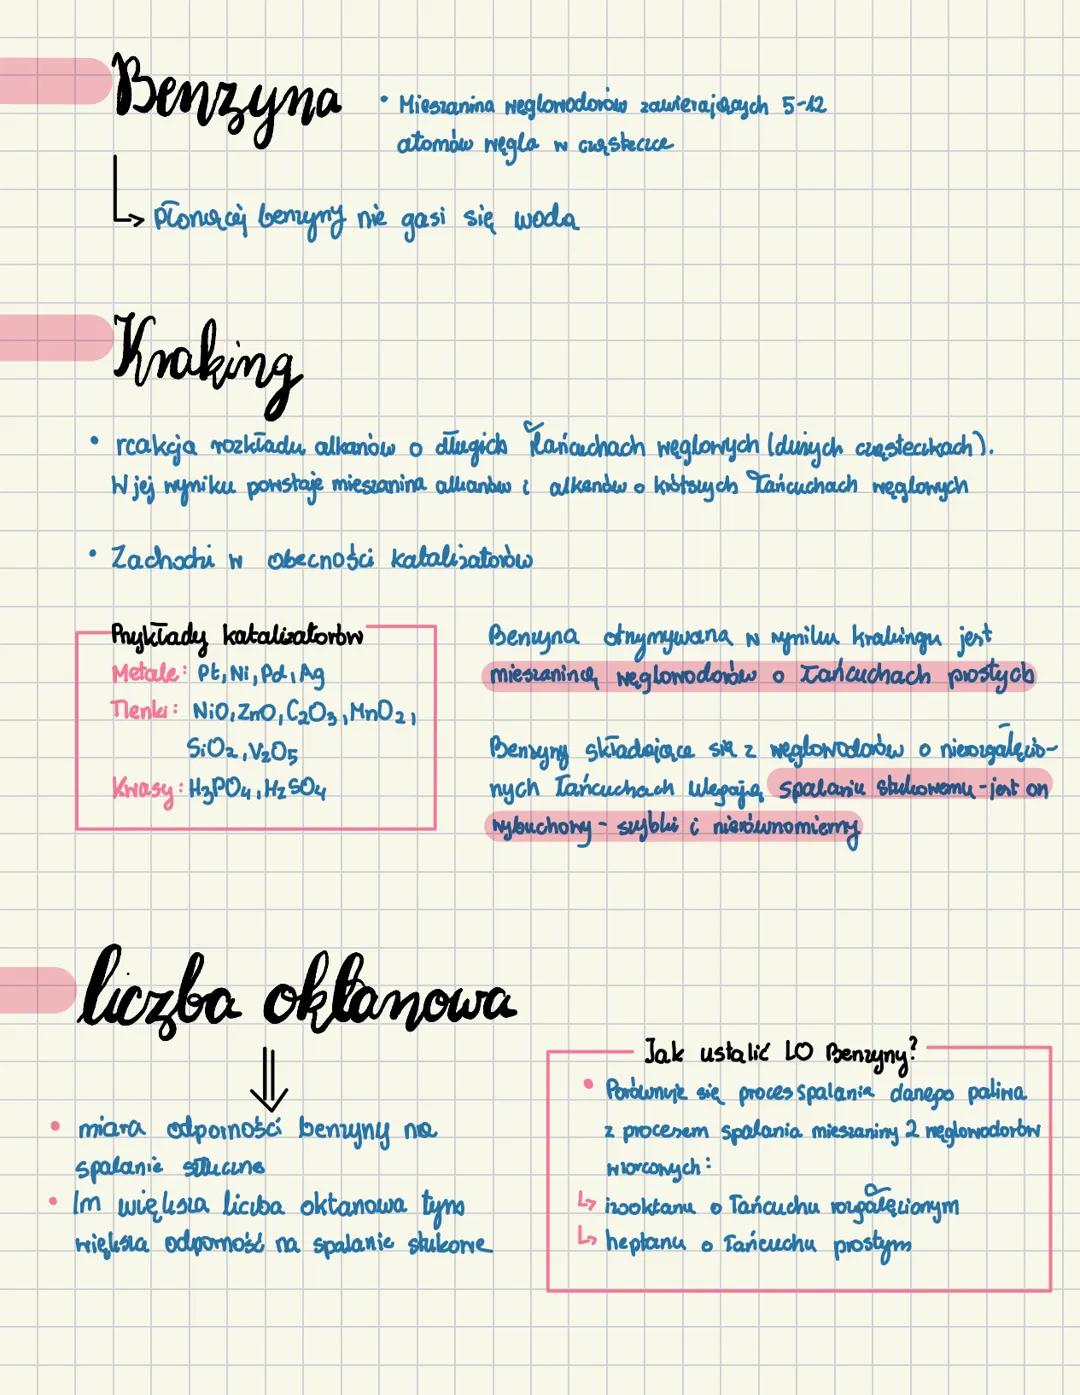 Benzyna
• Mieszanina węglowodorów zawierających 5-12
atomów węgla w cząsteczce
↳ płonącej benzyny nie gasi się wodą
Kraking
• reakcja rozkładu alkanów o długich łańcuchach węglowych (dużych cząsteczkach).
W jej wyniku powstaje mieszanina alkanów i alkenów o krótszych łańcuchach węglowych
• Zachodzi w obecności katalizatorów
Przykłady katalizatorów
Metale: Pt, Ni, Pd, Ag
Tlenki: NiO, ZnO, C₂O₃, MnO₂,
SiO₂, V₂O₅
Kwasy: H₃PO₄, H₂SO₄
Benzyna otrzymywana w wyniku krakingu jest
mieszaniną węglowodorów o łańcuchach prostych
Benzyny składające się z węglowodorów o nierozgałęzio-
nych łańcuchach ulegają spalaniu stukowemu - jest on
wybuchowy - szybki i nierównomierny
liczba oktanowa
⇓
• miara odporności benzyny na
spalanie
• Im większa liczba oktanowa tym
większa odporność na spalanie stukowe
Jak ustalić LO Benzyny?
• Porównuje się proces spalania danego paliwa
z procesem spalania mieszaniny 2 węglowodorów
wzorcowych:
↳ izooktanu o łańcuchu rozgałęzionym
↳ heptanu o łańcuchu prostym